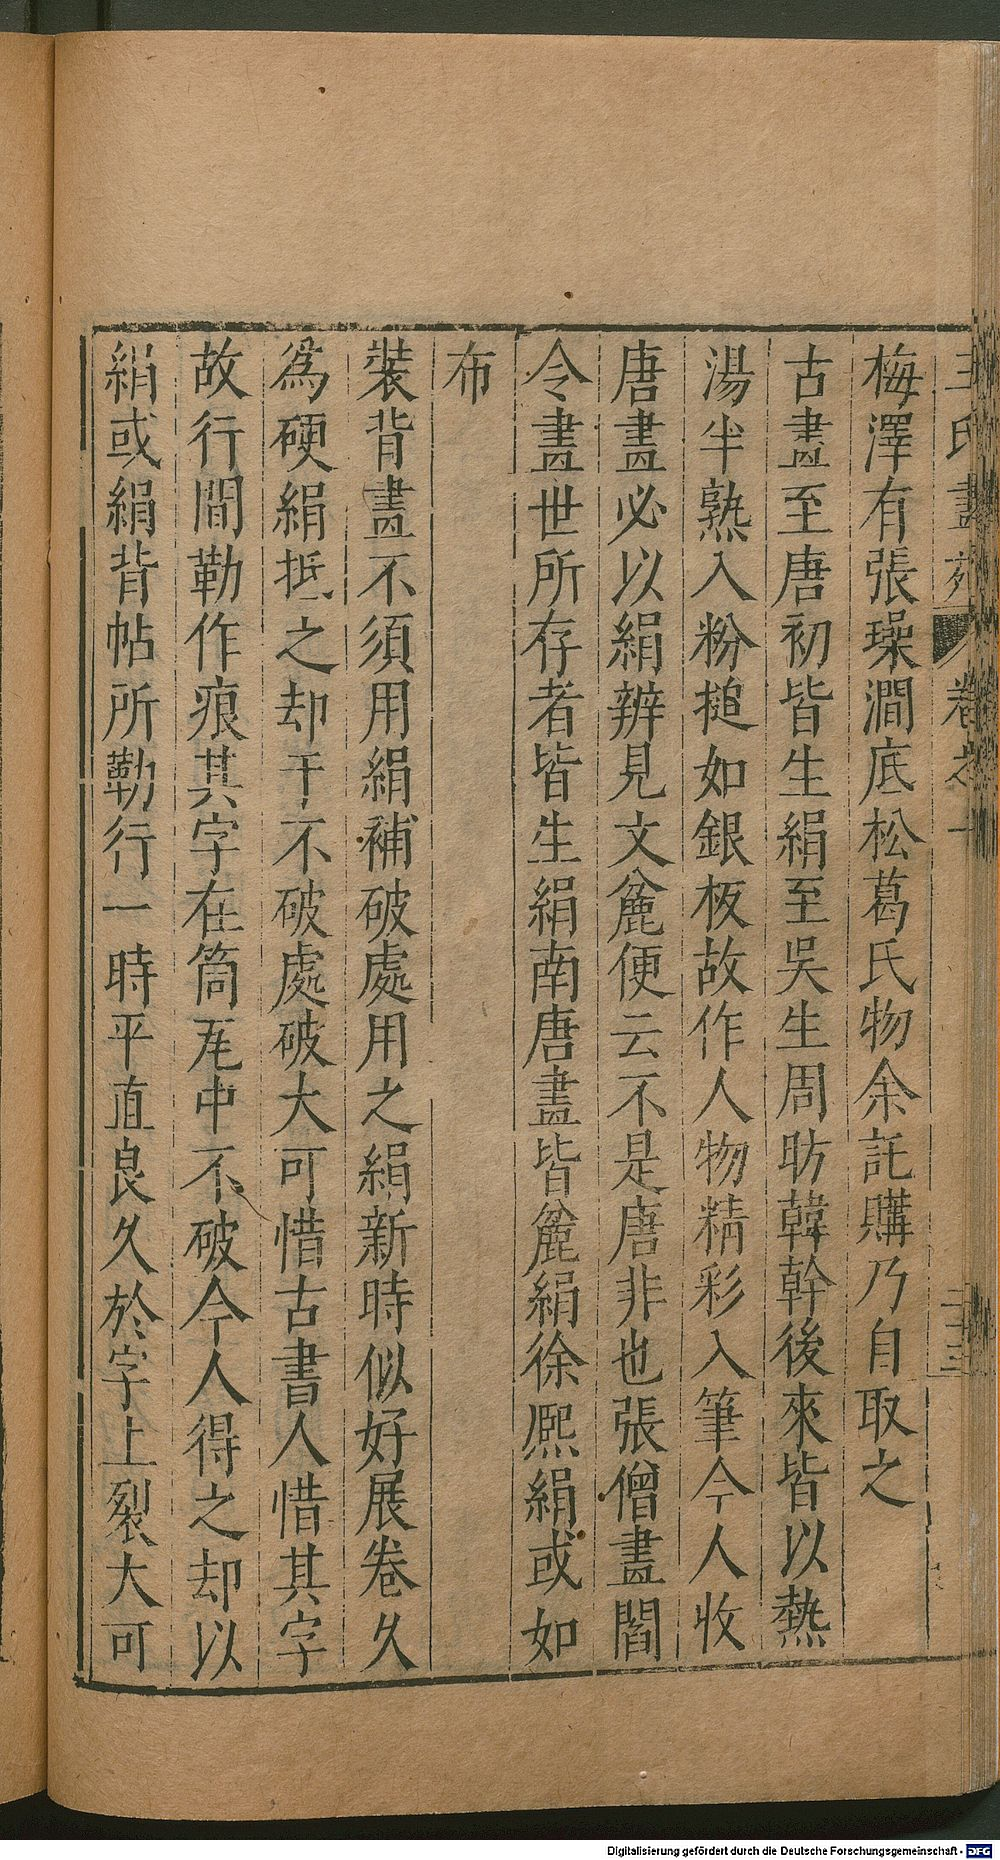 王氏畫苑 卷之一 二十三
梅澤有張璪澗底松葛氏物余託購乃自取之
古畫至唐初皆生絹至吳生周昉韓幹後來皆以熱
湯半熟入粉搥如銀板故作人物精彩入筆今人收
唐畫必以絹辨見文麄便云不是唐非也張僧畫閻
令畫世所存者皆生絹南唐畫皆麄絹徐熈絹或如
布
裝背畫不須用絹補破處用之絹新時似好展卷久
為硬絹抵之却于不破處破大可惜古書人惜其字
故行間勒作痕其字在筒瓦中不破今人得之却以
絹或絹背帖所勒行一時平直良久於字上裂大可
Digitalisierung gefördert durch die Deutsche Forschungsgemeinschaft - DFG